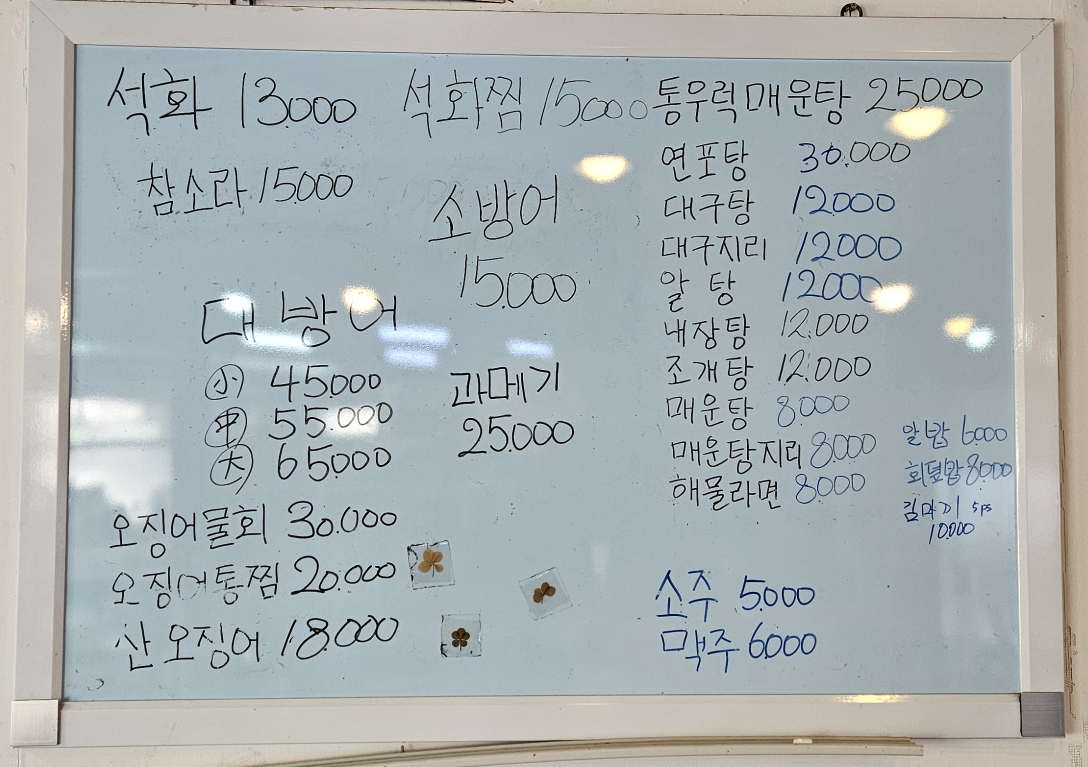 석화 13.000
참소라 15.000
대방어
小 45.000
中 55.000
大 65.000
오징어물회 30.000
오징어통찜 20.000
산오징어 18.000
석화찜 15.000
소방어
15.000
과메기
25.000
통우럭매운탕 25000
연포탕 30.000
대구탕 12000
대구지리 12000
알탕 12000
내장탕 12.000
조개탕 12.000
매운탕 8.000
매운탕지리 8.000
해물라면 8.000
알밥 6000
회덮밥 8000
김마끼 5ps
10.000
소주 5.000
맥주 6000